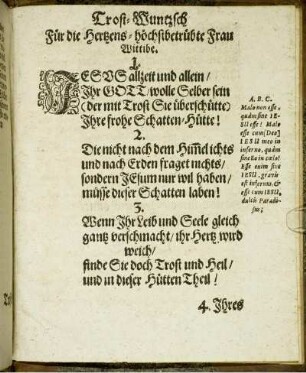 Trost-Wuntzsch
Für die Hertzens-höchstbetrübte Frau
Wittibe.
1.
JESVS allzeit und allein/
Ihr GOTT/ wolle Selber sein
(der mit Trost Sie überschütte)
Ihre frohe Schatten-Hütte!
A. B. C.
Malo non esse,
quàm sine IE-
SU esse! Malo
esse cum [Deo]
IESU meo in
inferno, quàm
sine Eo in cœlo!
Esse enim sine
IESU, gravis
est infernus, &
esse cum IESU,
dulcis Paradi-
sus;
2.
Die nicht nach dem Him̃el ichts
und nach Erden fraget nichts/
sondern JEsum nur wil haben/
müsse dieser Schatten laben!
3.
Wenn Ihr Leib und Seele gleich
gantz verschmacht/ ihr Hertz wird
weich/
finde Sie doch Trost und Heil/
und in dieser Hütten Theil!
4. Ihres